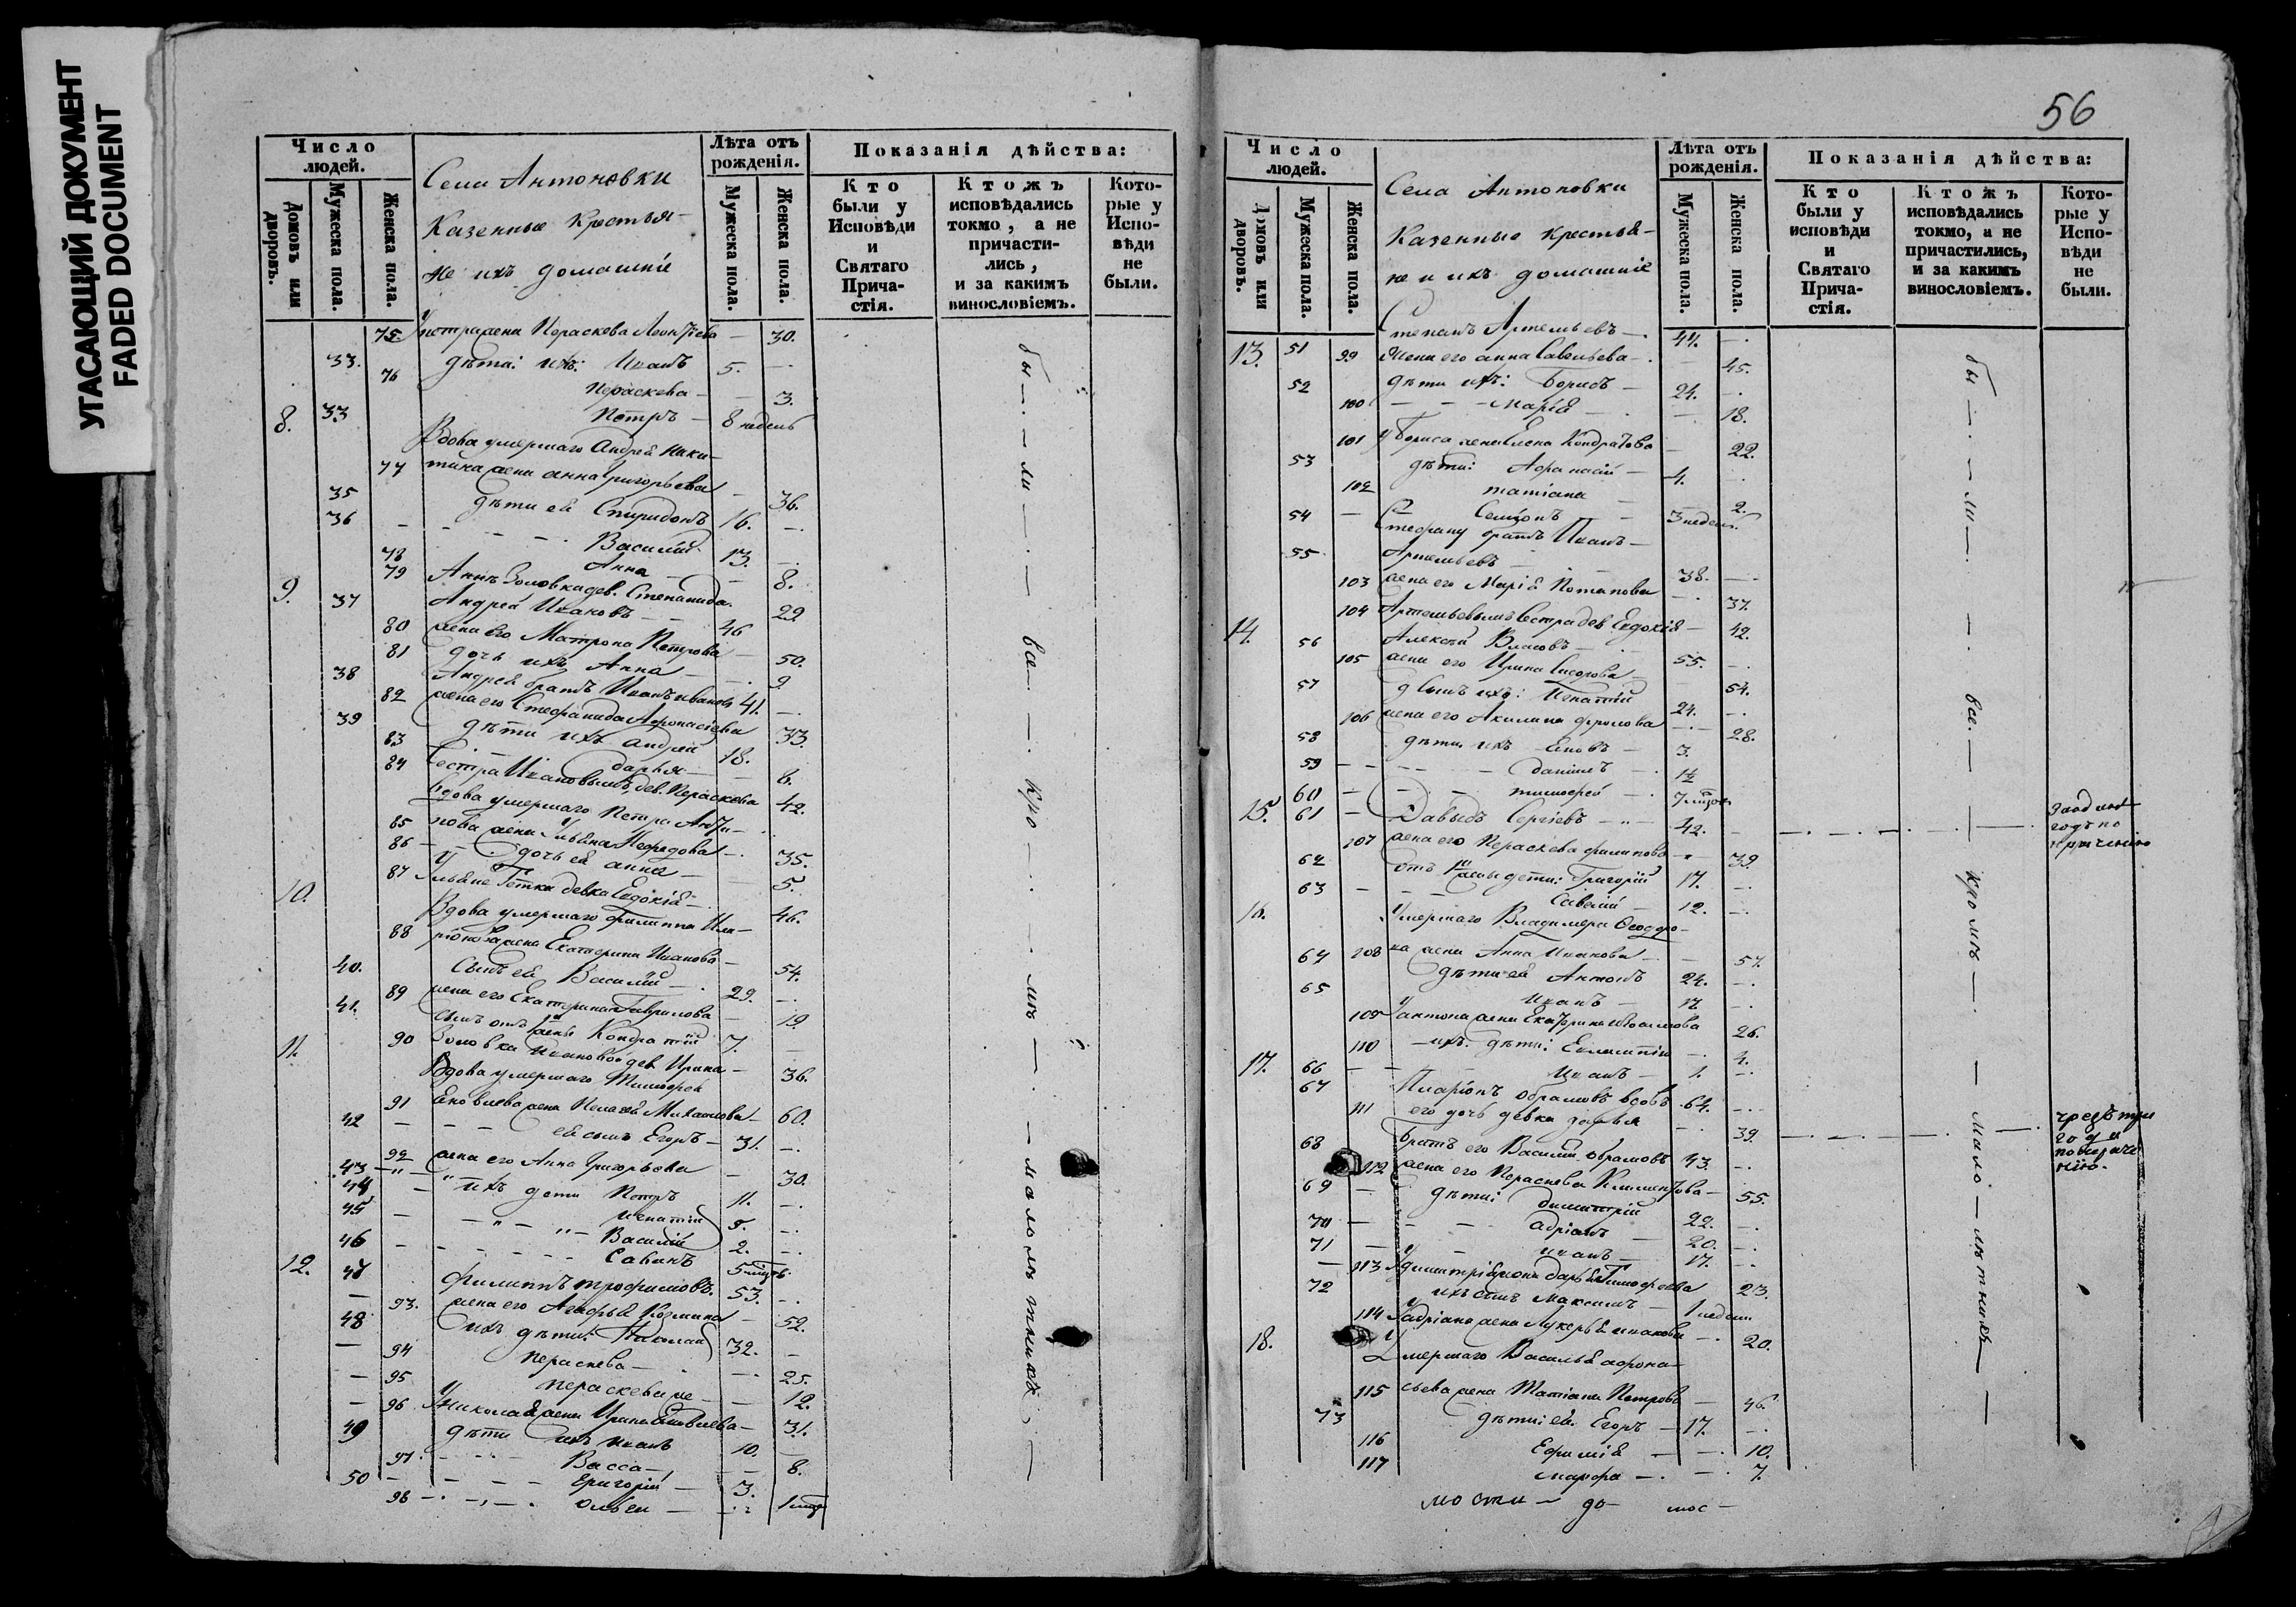 УГАСАЮЩИЙ ДОКУМЕНТ
FADED DOCUMENT
Число людей.
Домовъ или дворовъ.
Мужеска пола.
Женска пола.
Села Антоновки
Казенные крестья-
не ихъ домашніе
Лѣта отъ рожденія.
Мужеска пола.
Женска пола.
Показанія дѣйства:
Кто были у Исповѣди и Святаго Прича-стія.
Ктожъ исповѣдались токмо, а не причасти-лись, и за какимъ винословіемъ.
Кото-рые у Испо-вѣди не были.
75. Петра жена Параскева Леонтіева — 30.
33. дѣти ихъ: Иванъ 5. —
76 Пораскева — 3.
33 Петръ — 8 недель
8. Вдова умершаго Андрея Ники-
77 тина жена Анна Григорьева — 36.
35 дѣти ея Спиридонъ 16. —
36 Василій 13. —
78 Анна — 8.
79 Аннѣ Золовка дев. Степанида 29
9. 37 Андрей Ивановъ 46
80 жена его Матрона Петрова — 50.
81 дочь ихъ Анна — 9
38 Андрея братъ Иванъ Ивановъ 41. —
82 жена его Стефанида Афонасіева 33.
39 дѣти ихъ Андрей 18.
83 Дарья — 6.
84 Сестра Ивановымъ, дев. Пераскева 42.
Вдова умершаго Петра Анти-
85 пова жена Ульяна Нефедова — 35.
86 дочь ея анна — 5.
87 Ульянѣ Тетка девка Евдокія — 46.
10. Вдова умершаго Филиппа Ила-
88 ріонова жена Екатерина Иванова — 54.
40. Сынъ ея Василій — 29. —
89 жена его Екатерина Гаврилова — 19
41. сынъ отъ 1й жены Кондратій 7. —
90 Золовка Ивановой дев Ирина — 36.
11. Вдова умершаго Тимофея
91 Еновлева жена Пелагея Михайлова — 60.
42 ея сынъ Егоръ — 31. —
92 жена его Анна Григорьева — 30.
43 ихъ дети Петръ 11. —
44 Игнатій 5. —
45 Василій 2. —
46 Савинъ 5 мцовъ
12. 47 Филиппъ Трофимовъ. 53. —
93. жена его Агафья Козмина — 52.
48 ихъ дѣти: Николай 32. —
94 Пераскева — 25.
95 Пераскева же — 12.
96 У Николая жена Ирина Яковлева — 31.
49 дѣти ихъ Иванъ 10. —
97. Васса — 8.
50 Григорій — 3.
98 Ольга — 1 мцъ
бы — ли — все — кро — мѣ — малолѣтныхъ —
56
Число людей.
Домовъ или дворовъ.
Мужеска пола.
Женска пола.
Села Антоновки
Казенные крестья-
не и ихъ домашніе
Лѣта отъ рожденія.
Мужеска пола
Женска пола.
Показанія дѣйства:
Кто были у исповѣди и Святаго Прича-стія.
Ктожъ исповѣдались токмо, а не причастились, и за какимъ винословіемъ.
Кото-рые у Испо-вѣди не были.
13. 51 Степанъ Артемьевъ — 44. —
99 Жена его анна Савельева — 45.
52 дѣти ихъ: Борисъ — 24. —
100 Марія — 18.
101 У Бориса жена Елена Кондратова 22.
53 дѣти: Афанасій — 4.
102 татіана 2.
54 Семіонъ 3 недели.
Стефану братъ Иванъ —
55 Артемьевъ — 38. —
103 жена его Марія Потапова — 37.
104 Артемьевымъ Сестра дев Евдокія — 42.
14. 56 Алексѣй Власовъ — 55. —
105 жена его Ирина Сидорова — 54.
57 Сынъ ихъ: Игнатій 24. —
106 жена его Акилина фролова — 28.
58 дѣти ихъ Еновъ — 3.
59 Даніилъ — 1½
60 тимофей — 7 мцовъ
15. 61 Давыдъ Сергіевъ — 42. —
107 жена его Пераскева филипова — 39.
62 отъ 1й жены дети: Григорій 17. —
63 Савелій 12. —
16. Умершаго Владимера Феодоро-
108 ва жена Анна Иванова — 57.
64 дѣти ея Антонъ 24. —
65 Иванъ — 17 —
109 У антона жена Екатерина 26.
110 ихъ дѣти: Евлампія — 4.
66 Иванъ — 1. —
17. 67 Иларіонъ Абрамовъ вдовъ 64. —
111 его дочь девка Дарья 39.
68 братъ его Василій Абрамовъ 43. —
112 жена его Пераскева Климентова — 55.
69 дѣти: Димитрій 22. —
70 Адріанъ 20. —
71 Иванъ — 17. —
113 У Димитрія жена Дарья Тимофеева 23.
72 ихъ сынъ Максимъ — 1 недели
114 У Адріана жена Лукерья Иванова — 20.
18. Умершаго Василья Афона-
115 сьева жена Татіана Петрова — 46.
73 дѣти: ея Егоръ — 17. —
116 Ефимія — 10.
117 Марфа — 7.
бы — ли — все — кромѣ — мало — лѣтныхъ —
годъ по
чрезъ три
года